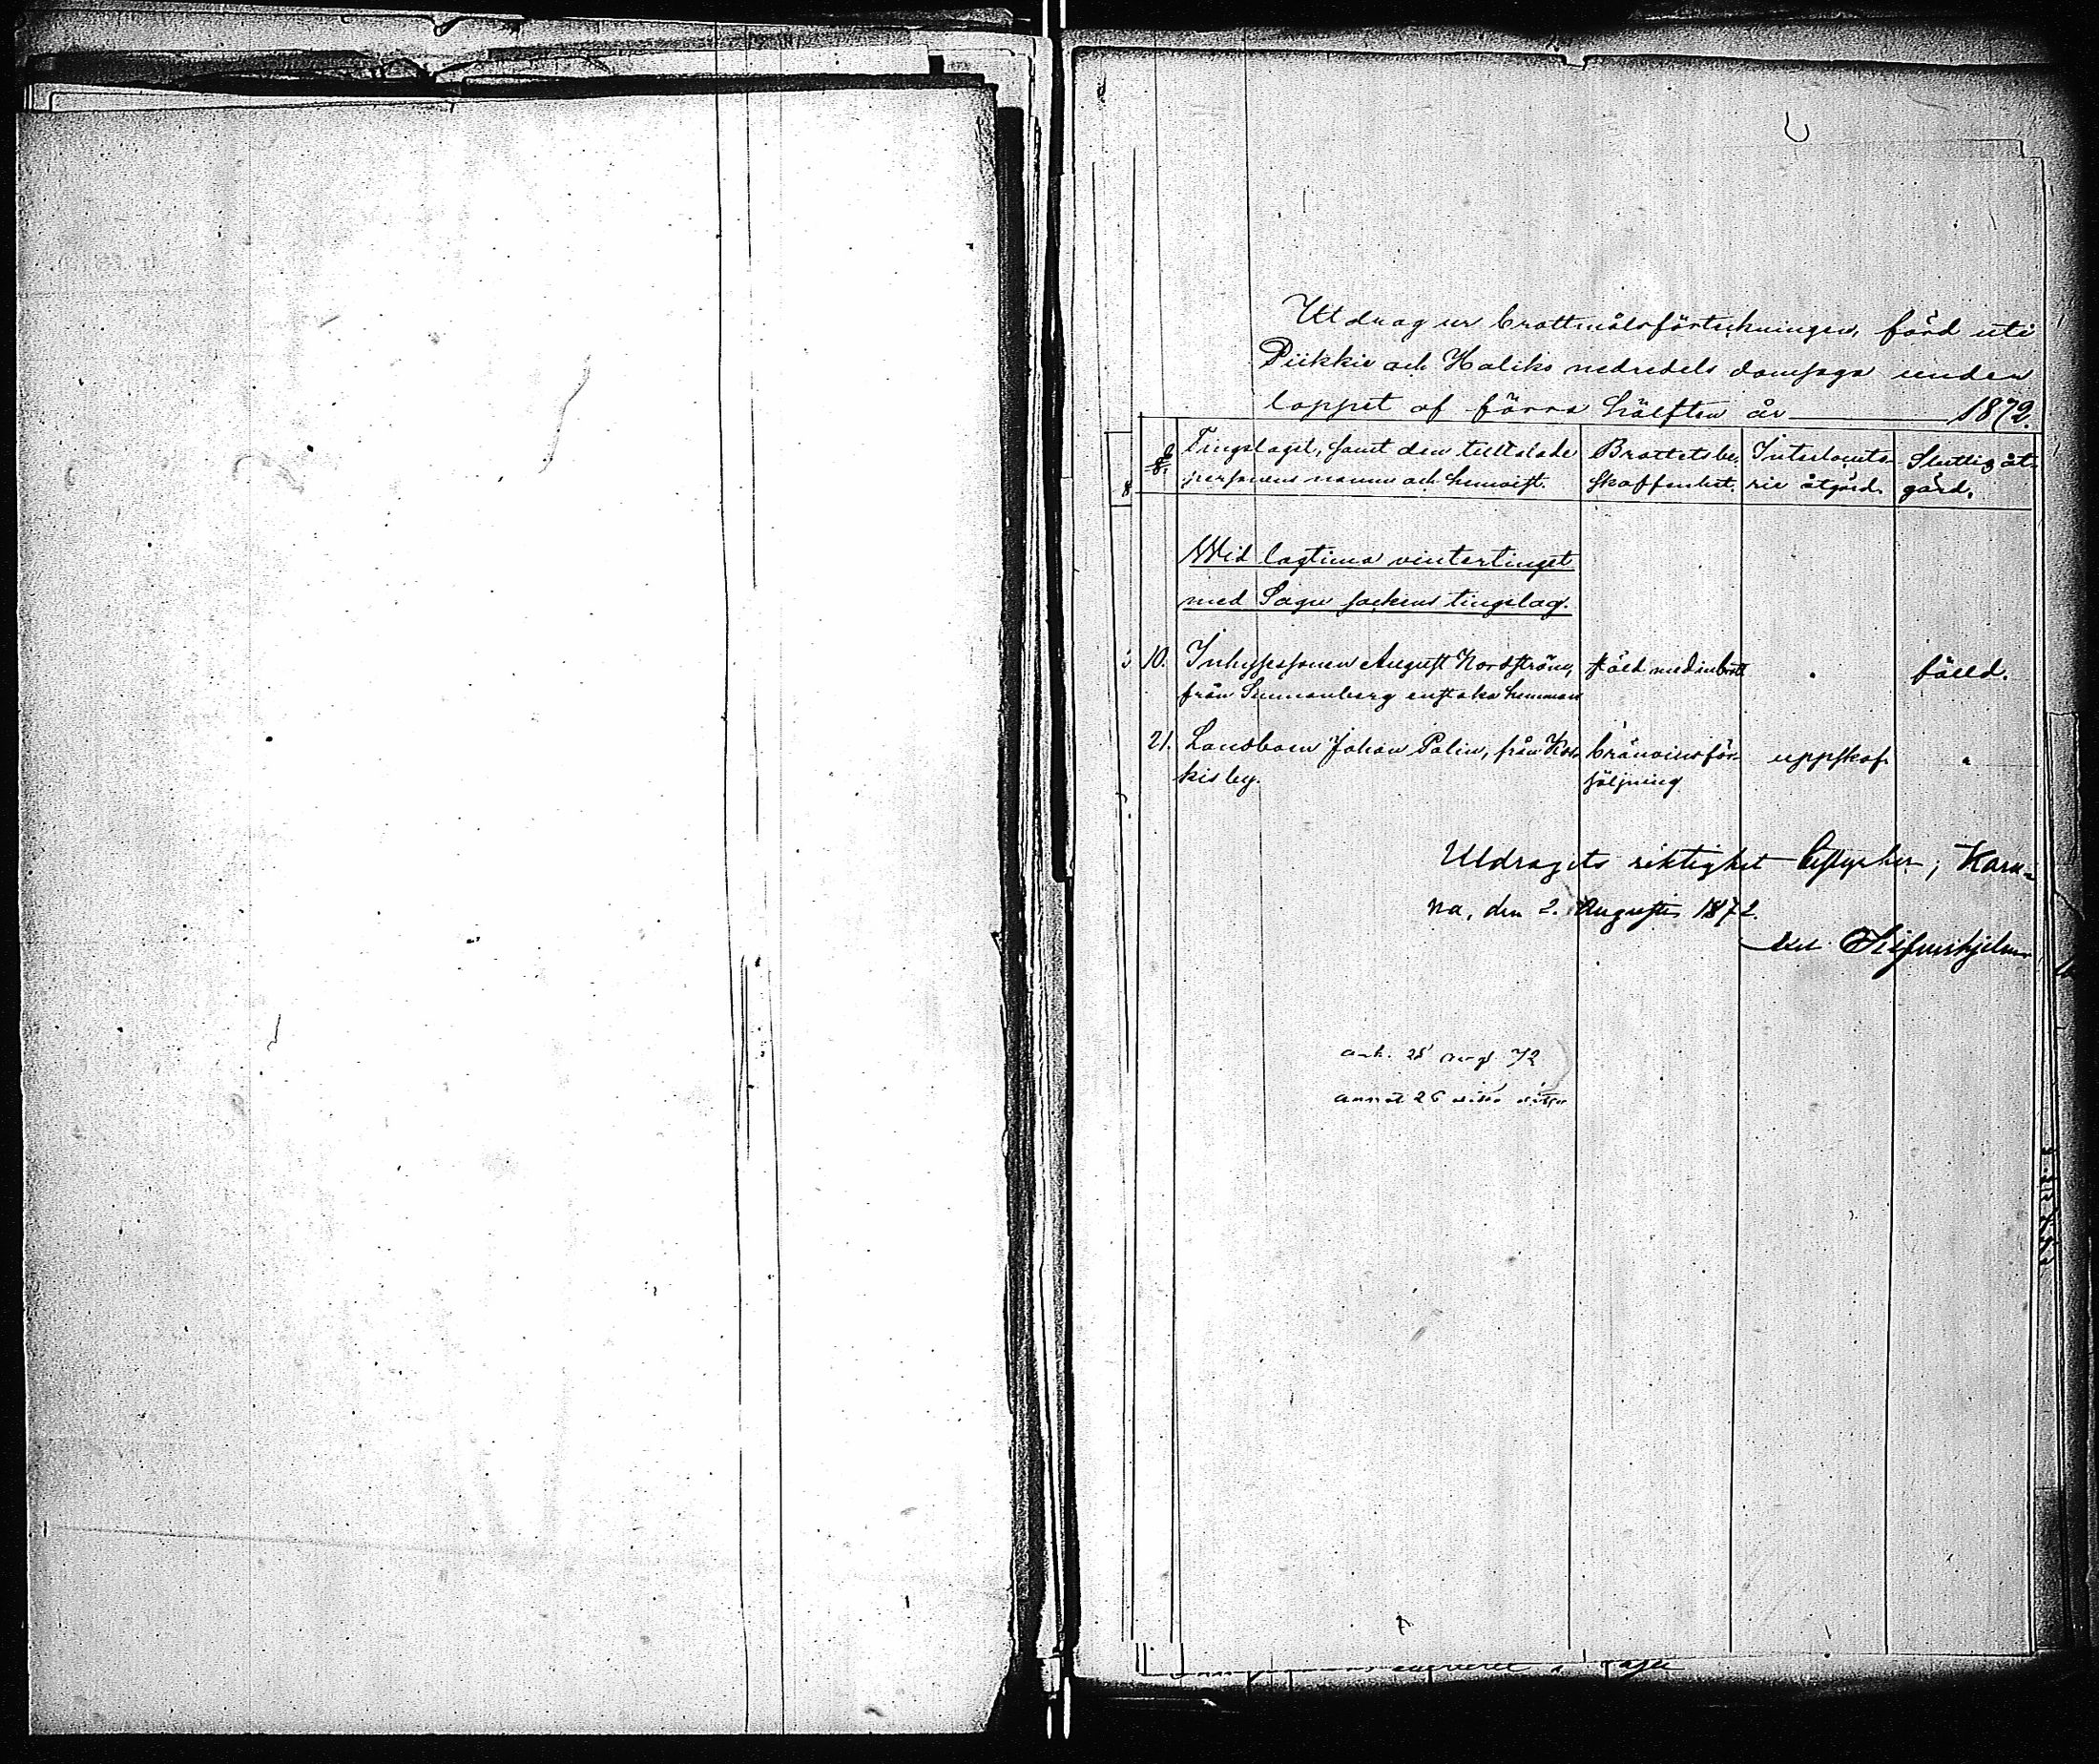 Utdrag ur brottmålsförteckningen, förd uti
Piikkie och Haliko nedredels domsaga under
loppet af förra hälften år 1872.
Tingslaget, samt den tilltalade
personens namn och hemvist.
Brottets be-
skaffenhet.
Interlocuto-
rie åtgärd.
Slutlig åt-
gärd.
Wid lagtima vintertinget
med Sagu sockens tingslag.
10. Inhysessonen August Nordström, stöld med inbrott " fälld.
från enstaka hemman
21. Landboen Johan Palin, från Kos- bränvinsför- uppskof. "
kis by. säljning.
Utdragets riktighet bestyrker; Karu-
na, den 2. Augusti 1872.
ank. 25 aug. 72